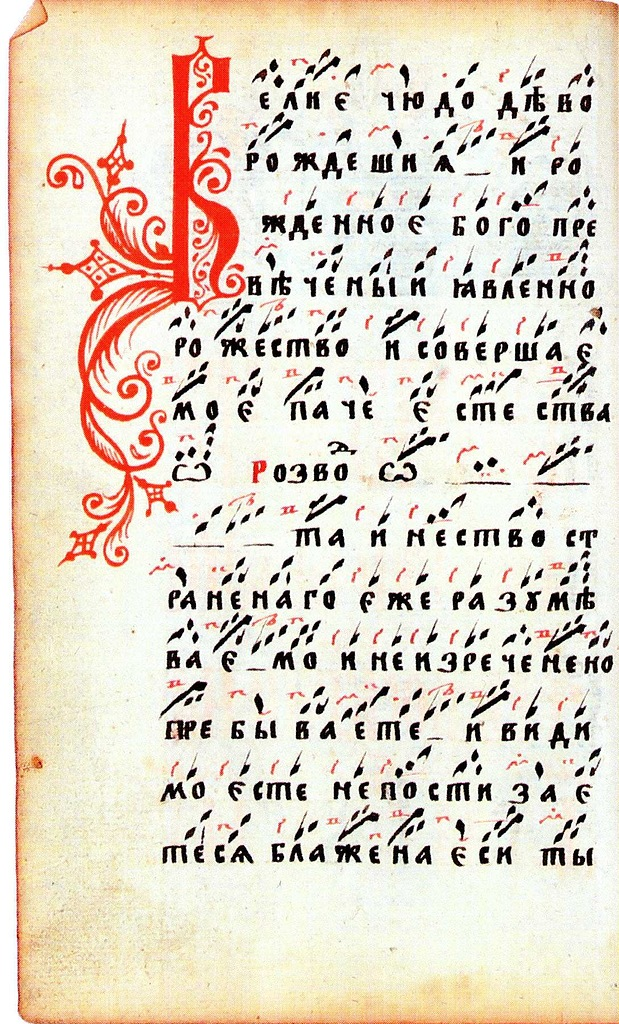 Велиꙗ чюдо дѣво
рождешиѧ _ и ро
жденноє бого пре
вѣченыи ꙗвленно
рожество и соверша є
моє паче єстества
ѡ Розво ѡ _ _
_ _ таинество ст
раненаго єже разꙋмѣ
ває _ мо и неизреченено
пребываєте _ и види
мо єсте непостизає
тесѧ блажена єси ты